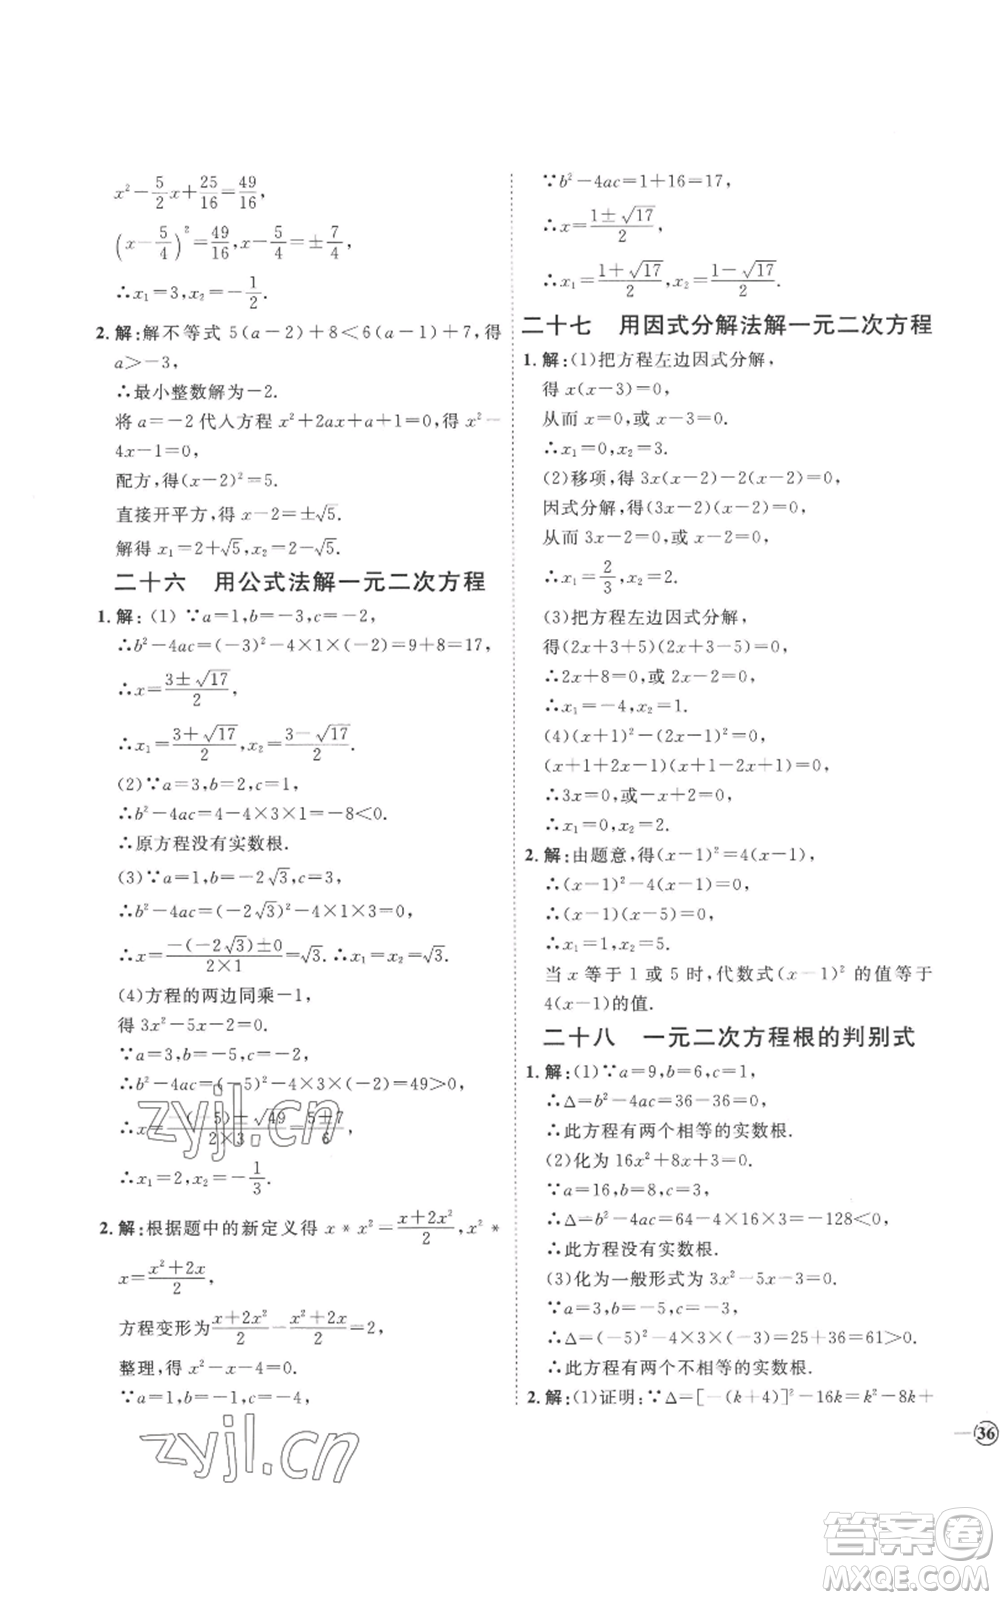 x²－5/2x＋25/16＝49/16,
(x－5/4)²＝49/16, x－5/4＝±7/4
∴x₁＝3, x₂＝－1/2.
2. 解:解不等式 5(a－2)＋8＜6(a－1)＋7,得
a＞－3,
∴最小整数解为－2.
将 a＝－2代入方程 x²＋2ax＋a＋1＝0,得 x²－
4x－1＝0,
配方,得(x－2)²＝5.
直接开平方,得 x－2＝±√5.
解得 x₁＝2＋√5, x₂＝2－√5.
二十六 用公式法解一元二次方程
1. 解:(1)∵a＝1,b＝－3,c＝－2,
∴b²－4ac＝(－3)²－4×1×(－2)＝9＋8＝17,
∴x＝(3±√17)/2,
∴x₁＝(3＋√17)/2, x₂＝(3－√17)/2.
(2)∵a＝3,b＝2,c＝1,
∴b²－4ac＝4－4×3×1＝－8＜0.
∴原方程没有实数根.
(3)∵a＝1,b＝－2√3,c＝3,
∴b²－4ac＝(－2√3)²－4×1×3＝0,
∴x＝(－(－2√3)±0)/(2×1)＝√3. ∴x₁＝x₂＝√3.
(4)方程的两边同乘－1,
得 3x²－5x－2＝0.
∵a＝3,b＝－5,c＝－2,
∴b²－4ac＝(－5)²－4×3×(－2)＝49＞0,
∴x＝(－5)±√49/2×3＝5±7/6,
∴x₁＝2, x₂＝－1/3.
2. 解:根据题中的新定义得 x * x²＝(x＋2x²)/2, x² *
x＝(x²＋2x)/2,
方程变形为(x＋2x²)/2－(x²＋2x)/2＝2,
整理,得 x²－x－4＝0.
∵a＝1,b＝－1,c＝－4,
∵b²－4ac＝1＋16＝17,
∴x＝(1±√17)/2,
∴x₁＝(1＋√17)/2, x₂＝(1－√17)/2.
二十七 用因式分解法解一元二次方程
1. 解:(1)把方程左边因式分解,
得 x(x－3)＝0,
从而 x＝0,或 x－3＝0.
∴x₁＝0, x₂＝3.
(2)移项,得 3x(x－2)－2(x－2)＝0,
因式分解,得(3x－2)(x－2)＝0,
从而 3x－2＝0,或 x－2＝0.
∴x₁＝2/3, x₂＝2.
(3)把方程左边因式分解,
得(2x＋3＋5)(2x＋3－5)＝0,
∴2x＋8＝0,或 2x－2＝0.
∴x₁＝－4, x₂＝1.
(4)(x＋1)²－(2x－1)²＝0,
(x＋1＋2x－1)(x＋1－2x＋1)＝0,
∴3x＝0,或－x＋2＝0.
∴x₁＝0, x₂＝2.
2. 解:由题意,得(x－1)²＝4(x－1),
∴(x－1)²－4(x－1)＝0,
∴(x－1)(x－5)＝0.
∴x₁＝1, x₂＝5.
当 x 等于 1 或 5 时,代数式(x－1)² 的值等于
4(x－1)的值.
二十八 一元二次方程根的判别式
1. 解:(1)∵a＝9,b＝6,c＝1,
∴Δ＝b²－4ac＝36－36＝0,
∴此方程有两个相等的实数根.
(2)化为 16x²＋8x＋3＝0.
∵a＝16,b＝8,c＝3,
∴Δ＝b²－4ac＝64－4×16×3＝－128＜0,
∴此方程没有实数根.
(3)化为一般形式为 3x²－5x－3＝0.
∵a＝3,b＝－5,c＝－3,
∴Δ＝(－5)²－4×3×(－3)＝25＋36＝61＞0.
∴此方程有两个不相等的实数根.
2. 解:(1)证明:∵Δ＝[－(k＋4)]²－16k＝k²－8k＋
36
zyjl.cn
zyjl.cn
答案卷
MXQE.COM